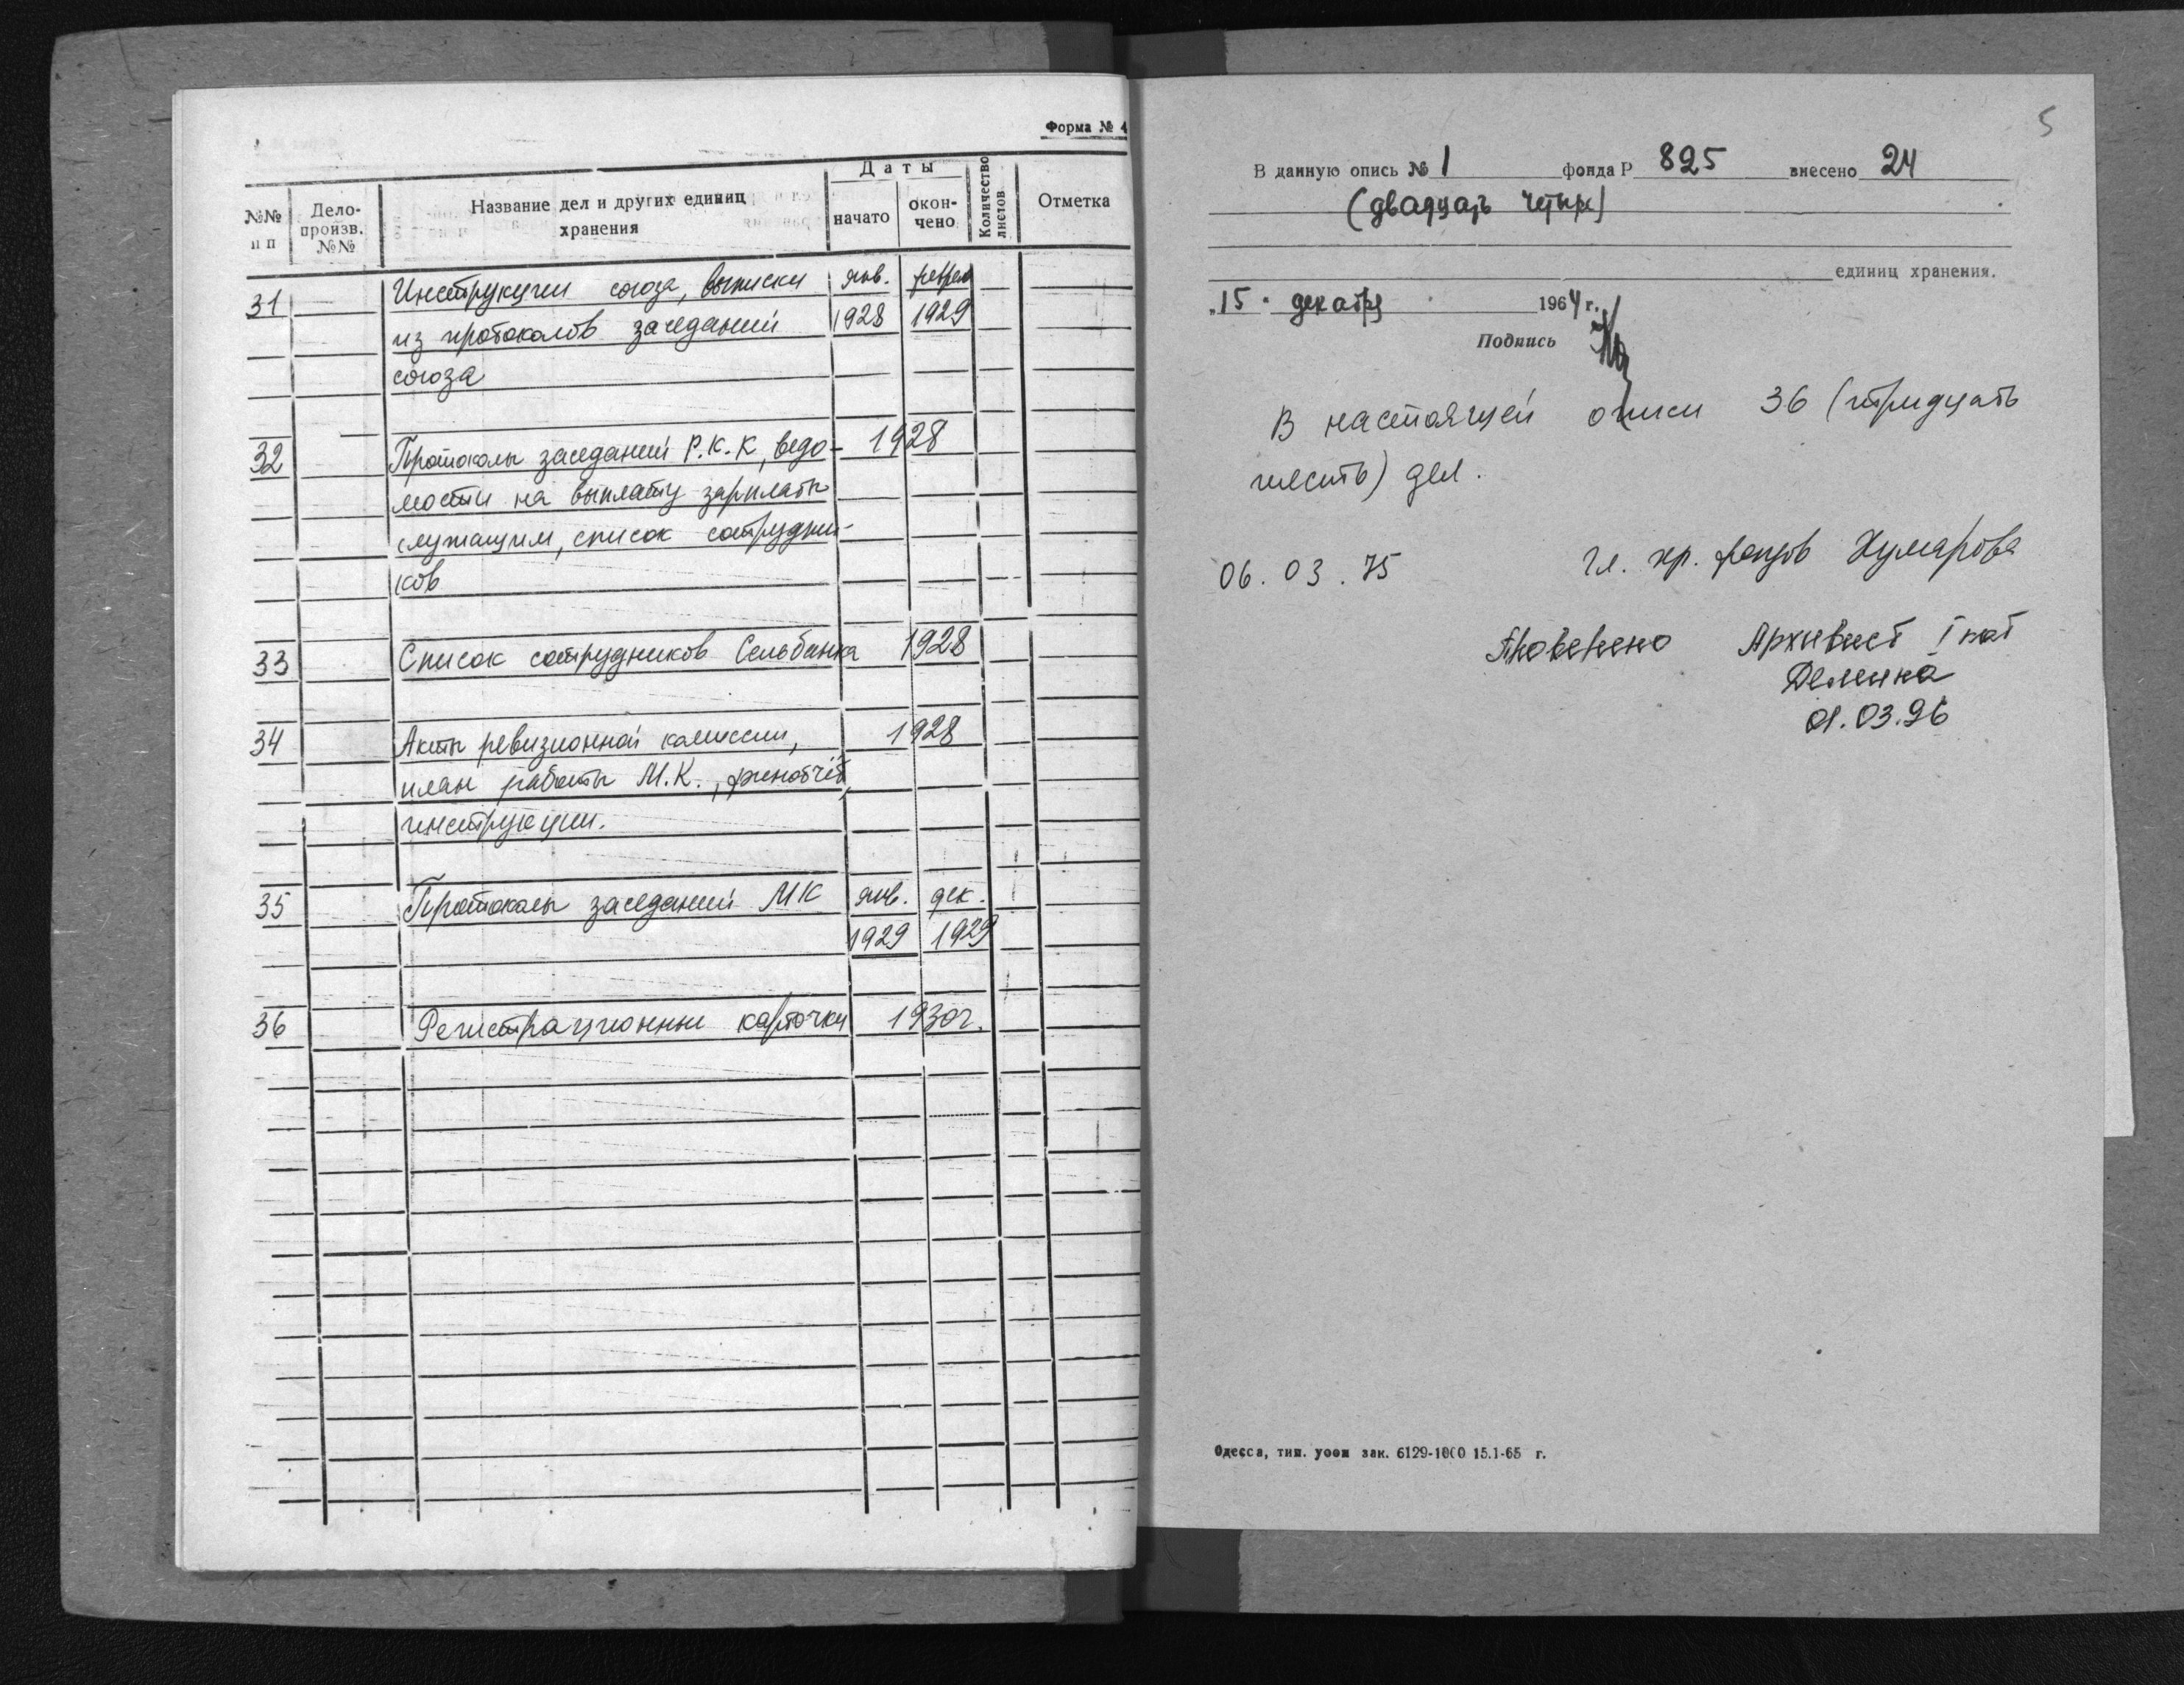 Форма № 4
№№ п п
Дело-произв. №№
Название дел и других единиц хранения
Даты
начато
окон-чено
Количество листов
Отметка
31 Инструкции союза, выписки янв. феврал
из протоколов заседаний 1928 1929
союза
32 Протоколы заседаний Р.К.К, ведо- 1928
мости на выплату зарплаты
служащим, список сотрудни-
ков
33 Список сотрудников Сельбанка 1928
34 Акты ревизионной комиссии, 1928
план работы М.К., финотчёт,
инструкции.
35 Протоколы заседаний МК янв. дек.
1929 1929
36 Регистрационные карточки 1930г.
5
В данную опись № 1 фонда Р 825 внесено 24
(двадцать четыре)
единиц хранения.
„15" декабря 1964 г.
Подпись
В настоящей описи 36 (тридцать
шесть) дел.
06.03.75 Гл. хр. фондов Хумарова
Проверено Архивист I кат
Деленка
01.03.96
Одесса, тип. уоои зак. 6129-1000 15.1-65 г.